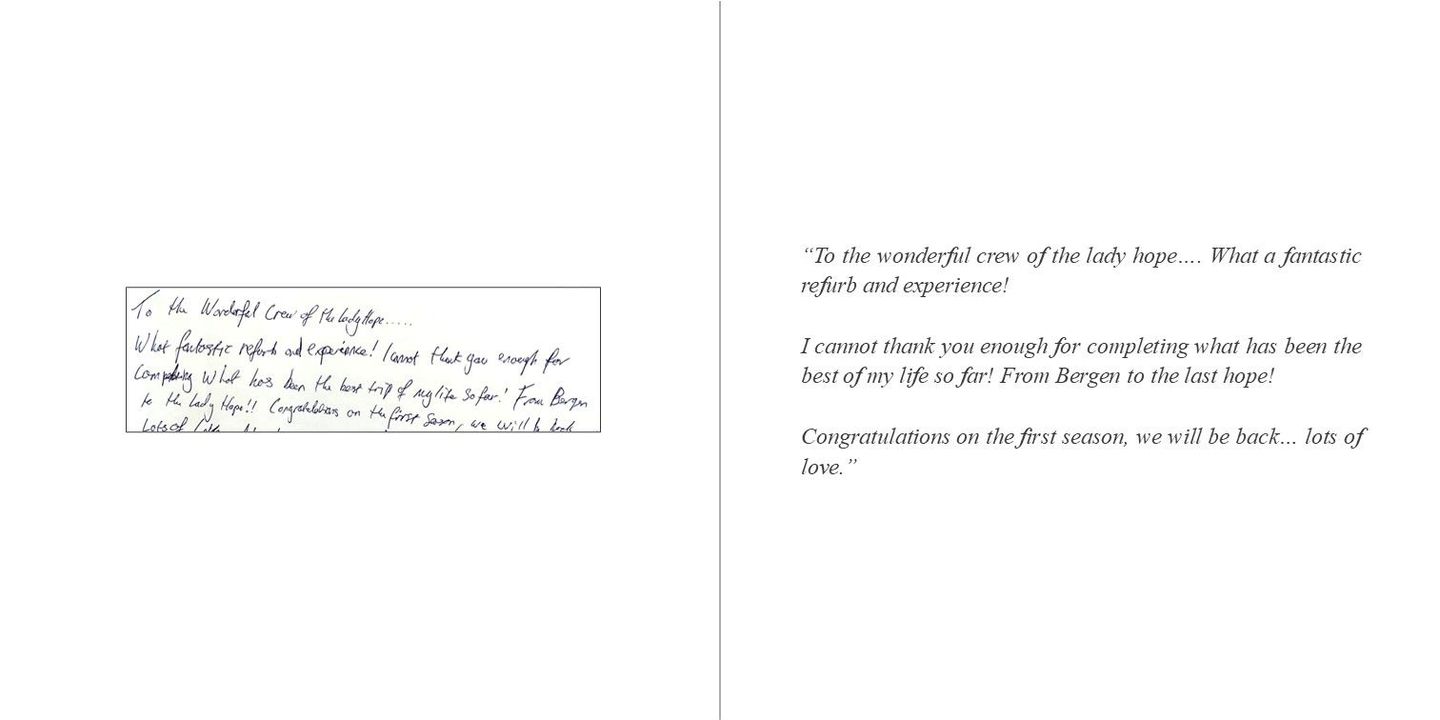 To the Wonderful Crew of the Lady Hope.....
What fantastic refurb and experience! I cannot thank you enough for
Completing What has been the best trip of my life so far! From Bergen
to the Lady Hope!! Congratulations on the first Season, we will be back
Lots of
“To the wonderful crew of the lady hope…. What a fantastic
refurb and experience!
I cannot thank you enough for completing what has been the
best of my life so far! From Bergen to the last hope!
Congratulations on the first season, we will be back... lots of
love.”